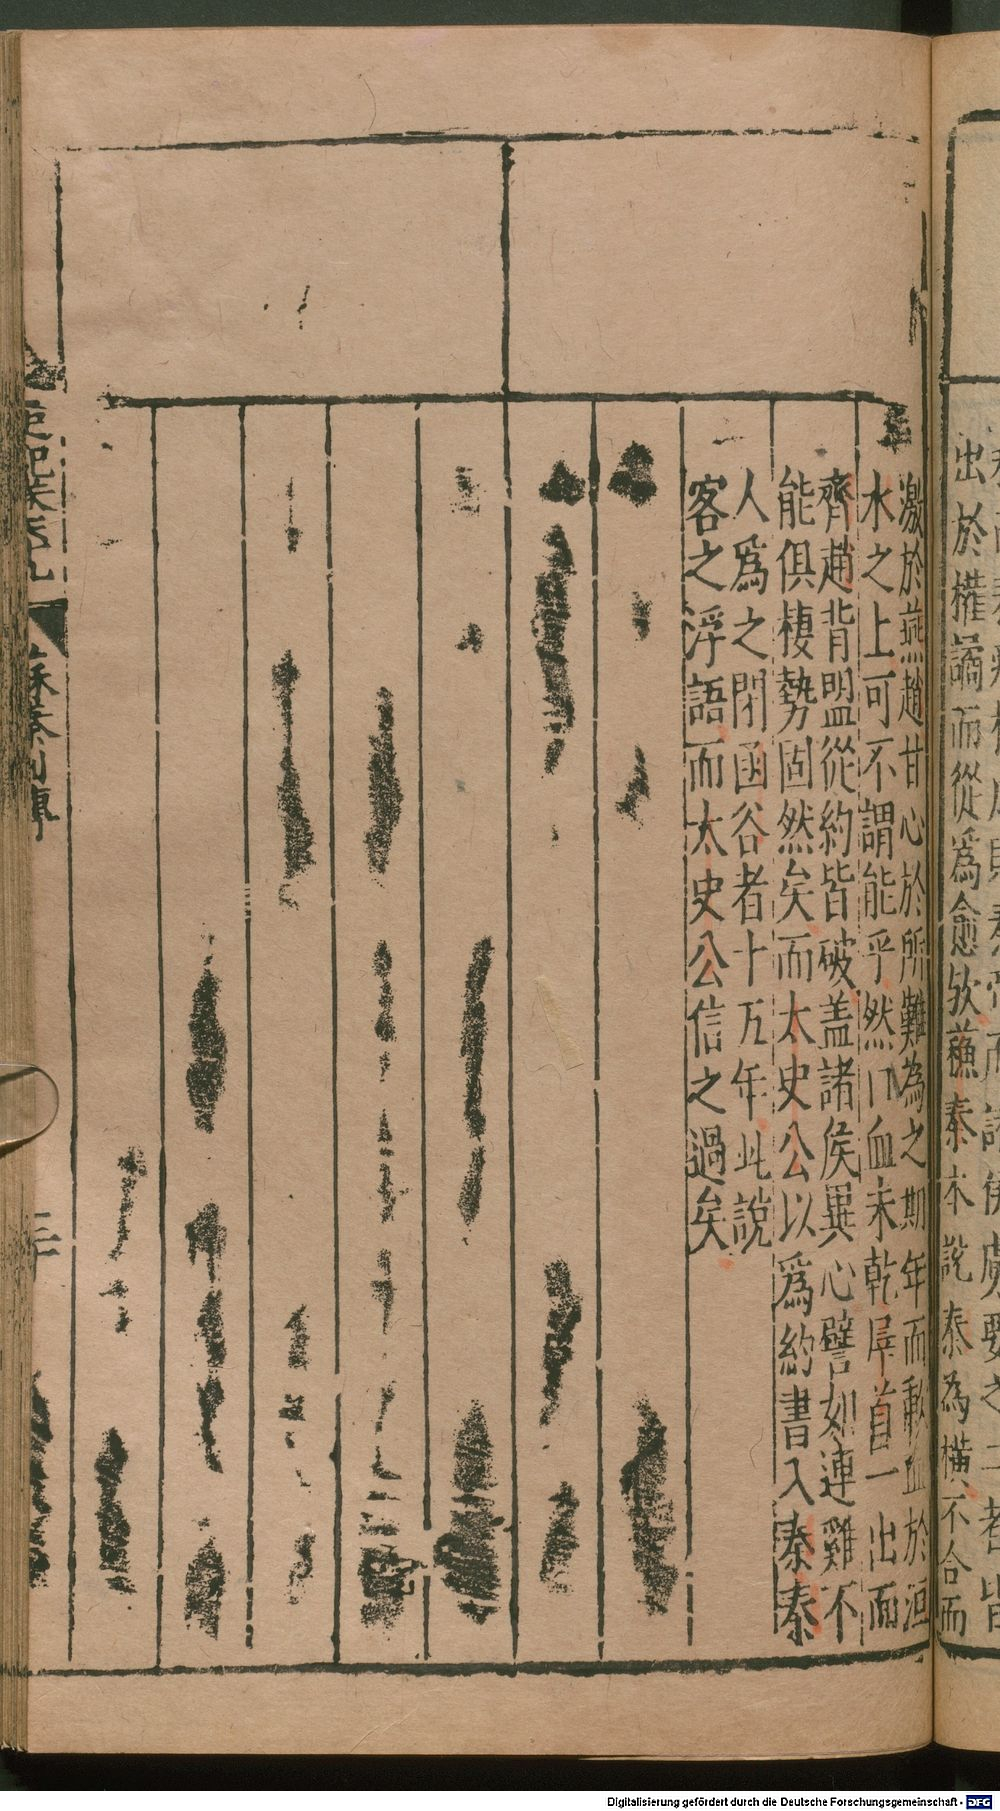 出於權譎而從爲愈欤蘓秦本說秦為橫不合而
激於燕趙甘心於所難為之期年而歃血於洹
水之上可不謂能乎然口血未乾犀首一出而
齊趙背盟從約皆破盖諸侯異心譬如連雞不
能俱棲勢固然矣而太史公以爲約書入秦秦
人爲之閉函谷者十五年此說
客之浮語而太史公信之過矣
蘇秦列傳
二十
Digitalisierung gefördert durch die Deutsche Forschungsgemeinschaft - DFG